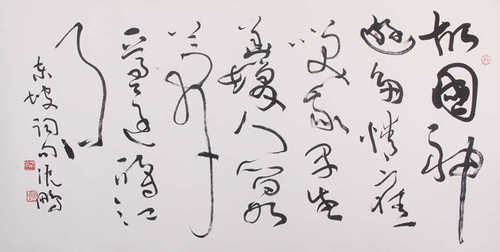 故國神
遊多情應
笑我早生
華髮人間如
夢
一尊還酹江
月
東坡詞句沈鵬